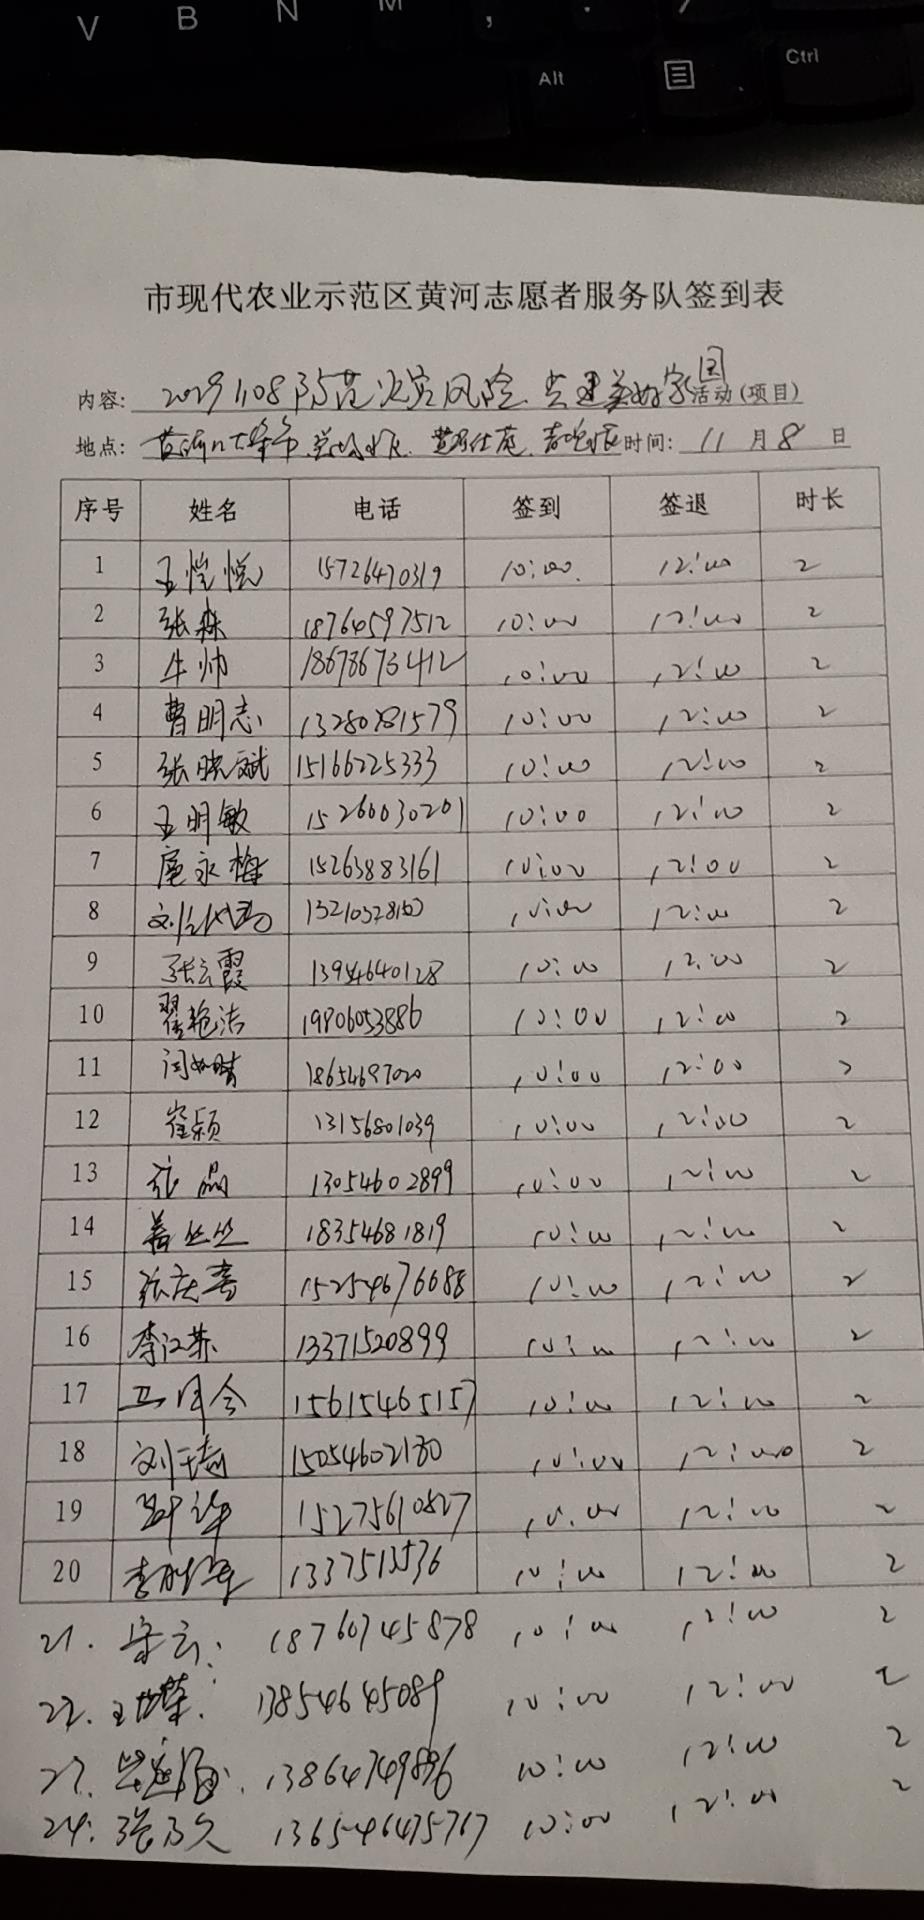 V B N M , . /
Alt Ctrl
市现代农业示范区黄河志愿者服务队签到表
内容: 防范火灾风险 共建美好家园 活动(项目)
地点: 时间: 11 月 8 日
序号 姓名 电话 签到 签退 时长
1 王恺悦 15726470319 10:00 12:00 2
2 张森 18764597512 10:00 12:00 2
3 牛帅 18678673412 10:00 12:00 2
4 曹明志 13280781579 10:00 12:00 2
5 张晓斌 15166225333 10:00 12:00 2
6 王明敏 15266030201 10:00 12:00 2
7 扈永梅 15263883161 10:00 12:00 2
8 10:00 12:00 2
9 张云霞 13954640128 10:00 12:00 2
10 翟艳洁 19806053886 10:00 12:00 2
11 闫如晴 18654697020 10:00 12:00 2
12 崔颖 13156801039 10:00 12:00 2
13 张晶 13054602899 10:00 12:00 2
14 盖丝丝 18354681819 10:00 12:00 2
15 张庆喜 15254676688 10:00 12:00 2
16 李江燕 13371520899 10:00 12:00 2
17 15615465157 10:00 12:00 2
18 刘于琦 15054602180 10:00 12:00 2
19 15275610827 10:00 12:00 2
20 10:00 12:00 2
21. 18760745878 10:00 12:00 2
22. 13854645089 10:00 12:00 2
23. 13864749896 10:00 12:00 2
24. 10:00 12:00 2